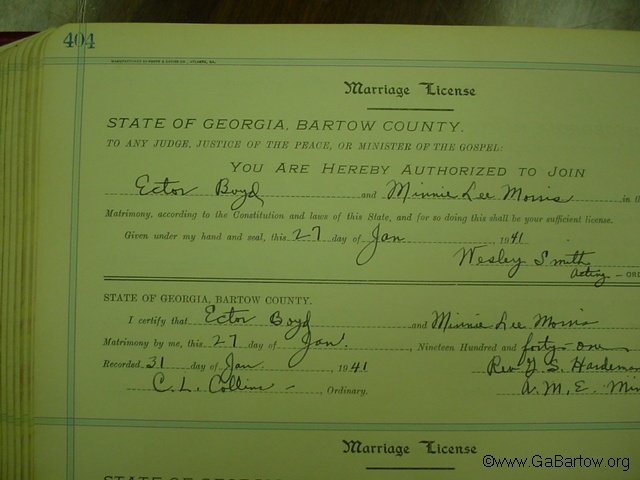 404
Marriage License
STATE OF GEORGIA, BARTOW COUNTY.
TO ANY JUDGE, JUSTICE OF THE PEACE, OR MINISTER OF THE GOSPEL:
YOU ARE HEREBY AUTHORIZED TO JOIN
Ector Boyd and Minnie Lee Morris in th
Matrimony, according to the Constitution and laws of this State, and for so doing this shall be your sufficient license.
Given under my hand and seal, this 27 day of Jan, 1941
Wesley Smith
Acting — ORD
STATE OF GEORGIA, BARTOW COUNTY.
I certify that Ector Boyd and Minnie Lee Morris
Matrimony by me, this 27 day of Jan., Nineteen Hundred and forty-one
Recorded 31 day of Jan., 1941 Rev. Y. S. Hardeman
C. L. Collins -, Ordinary. A. M. E. Min
Marriage License
STATE OF GEORGIA, BARTOW COUNTY.
©www.GaBartow.org